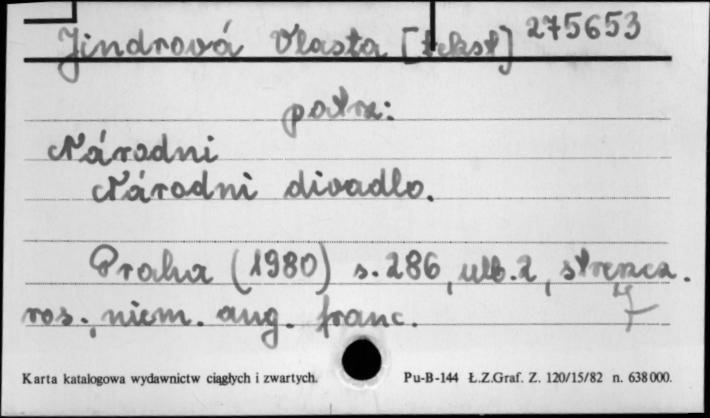 Jindrová Vlasta [tekst] 275653
patrz:
Národni
Národni divadlo.
Praha (1980) s. 286, ulb. 2, streszcz.
ros., niem. ang. franc.
Karta katalogowa wydawnictw ciągłych i zwartych. Pu-B-144 Ł.Z.Graf. Z. 120/15/82 n. 638 000.